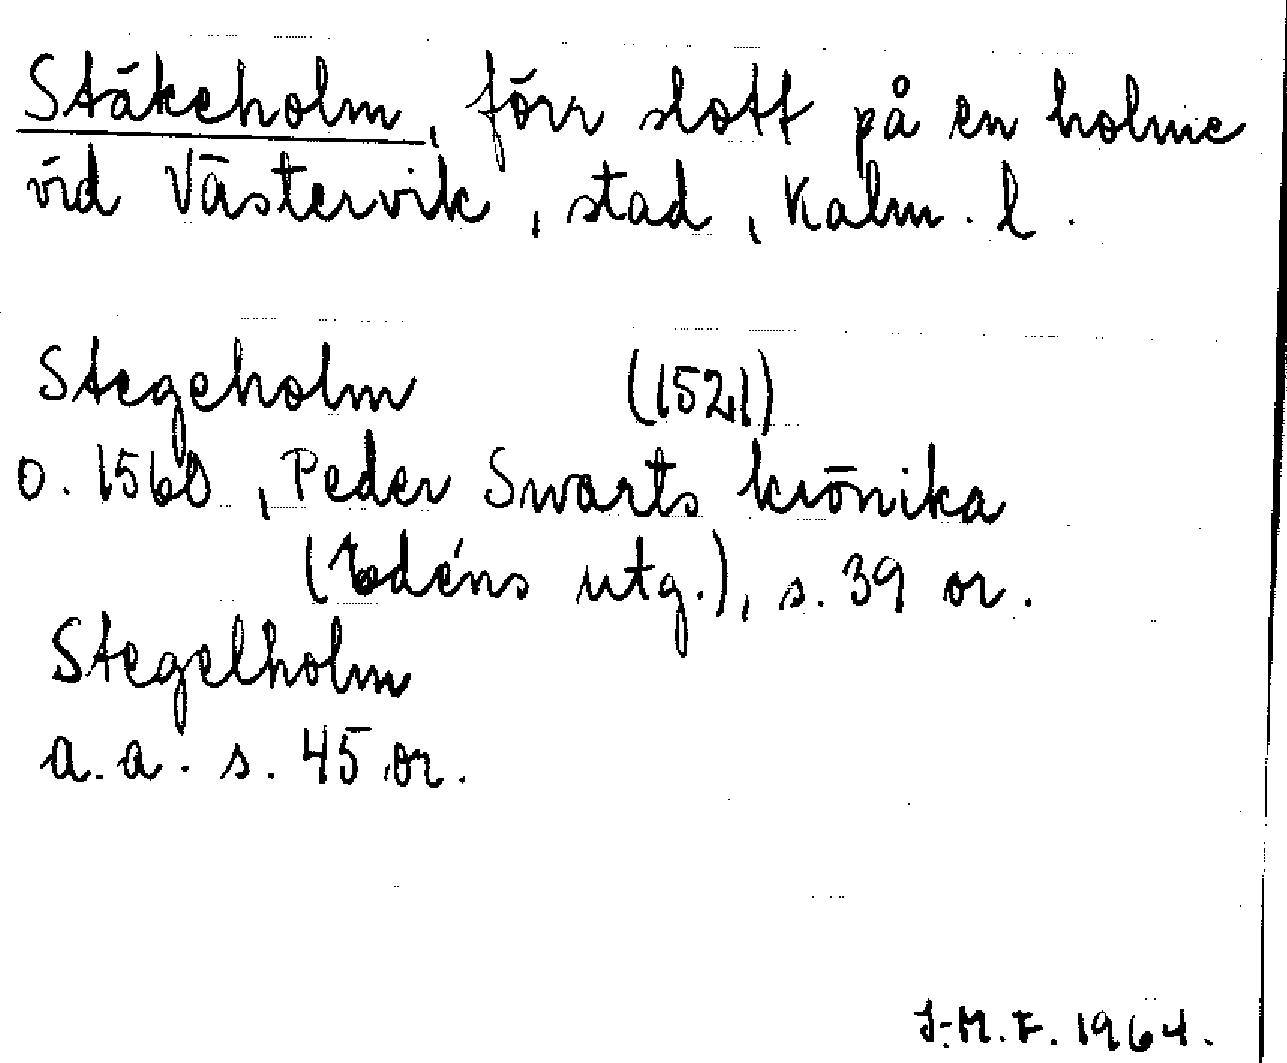 Stäkeholm, förr slott på en holme
vid Västervik, stad, Kalm. l.
Stegeholm (1521)
o. 1560, Peder Swarts krönika
(Edéns utg.), s. 39 or.
Stegelholm
a.a. s. 45 or.
J-M. F. 1964.